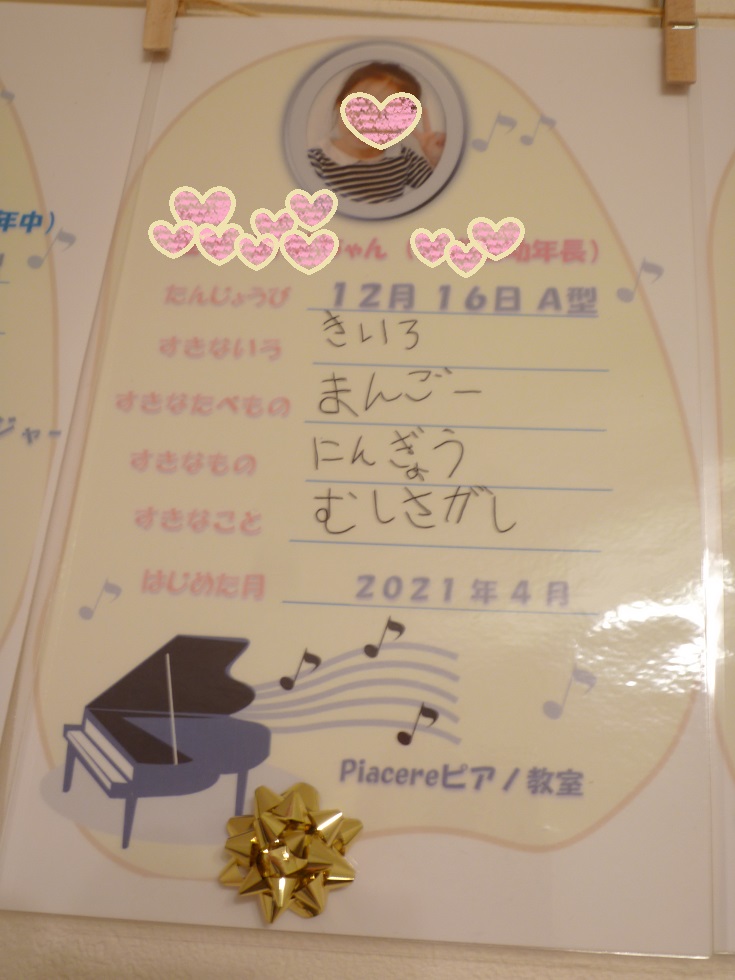 ちゃん（ 幼年長）
たんじょうび 12月 16日 A型
すきないろ きいろ
すきなたべもの まんごー
すきなもの にんぎょう
すきなこと むしさがし
はじめた月 2021年4月
Piacereピアノ教室
年中）
ジャー